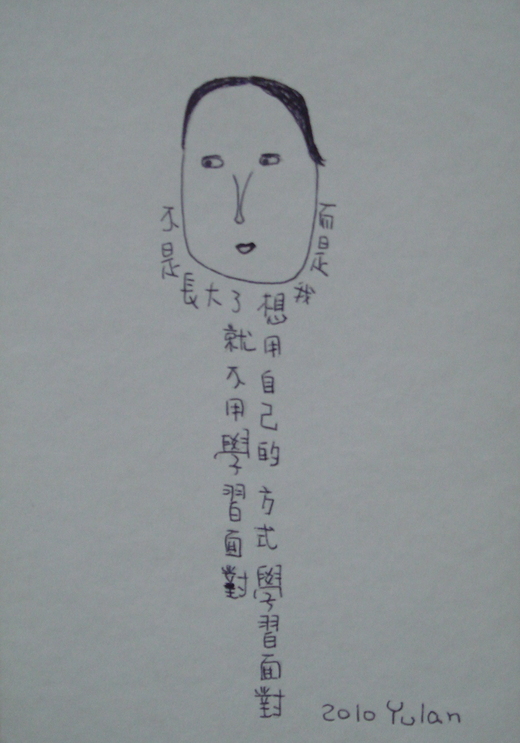 不是長大了就不用學習面對
而是我想用自己的方式學習面對
2010 Yulan